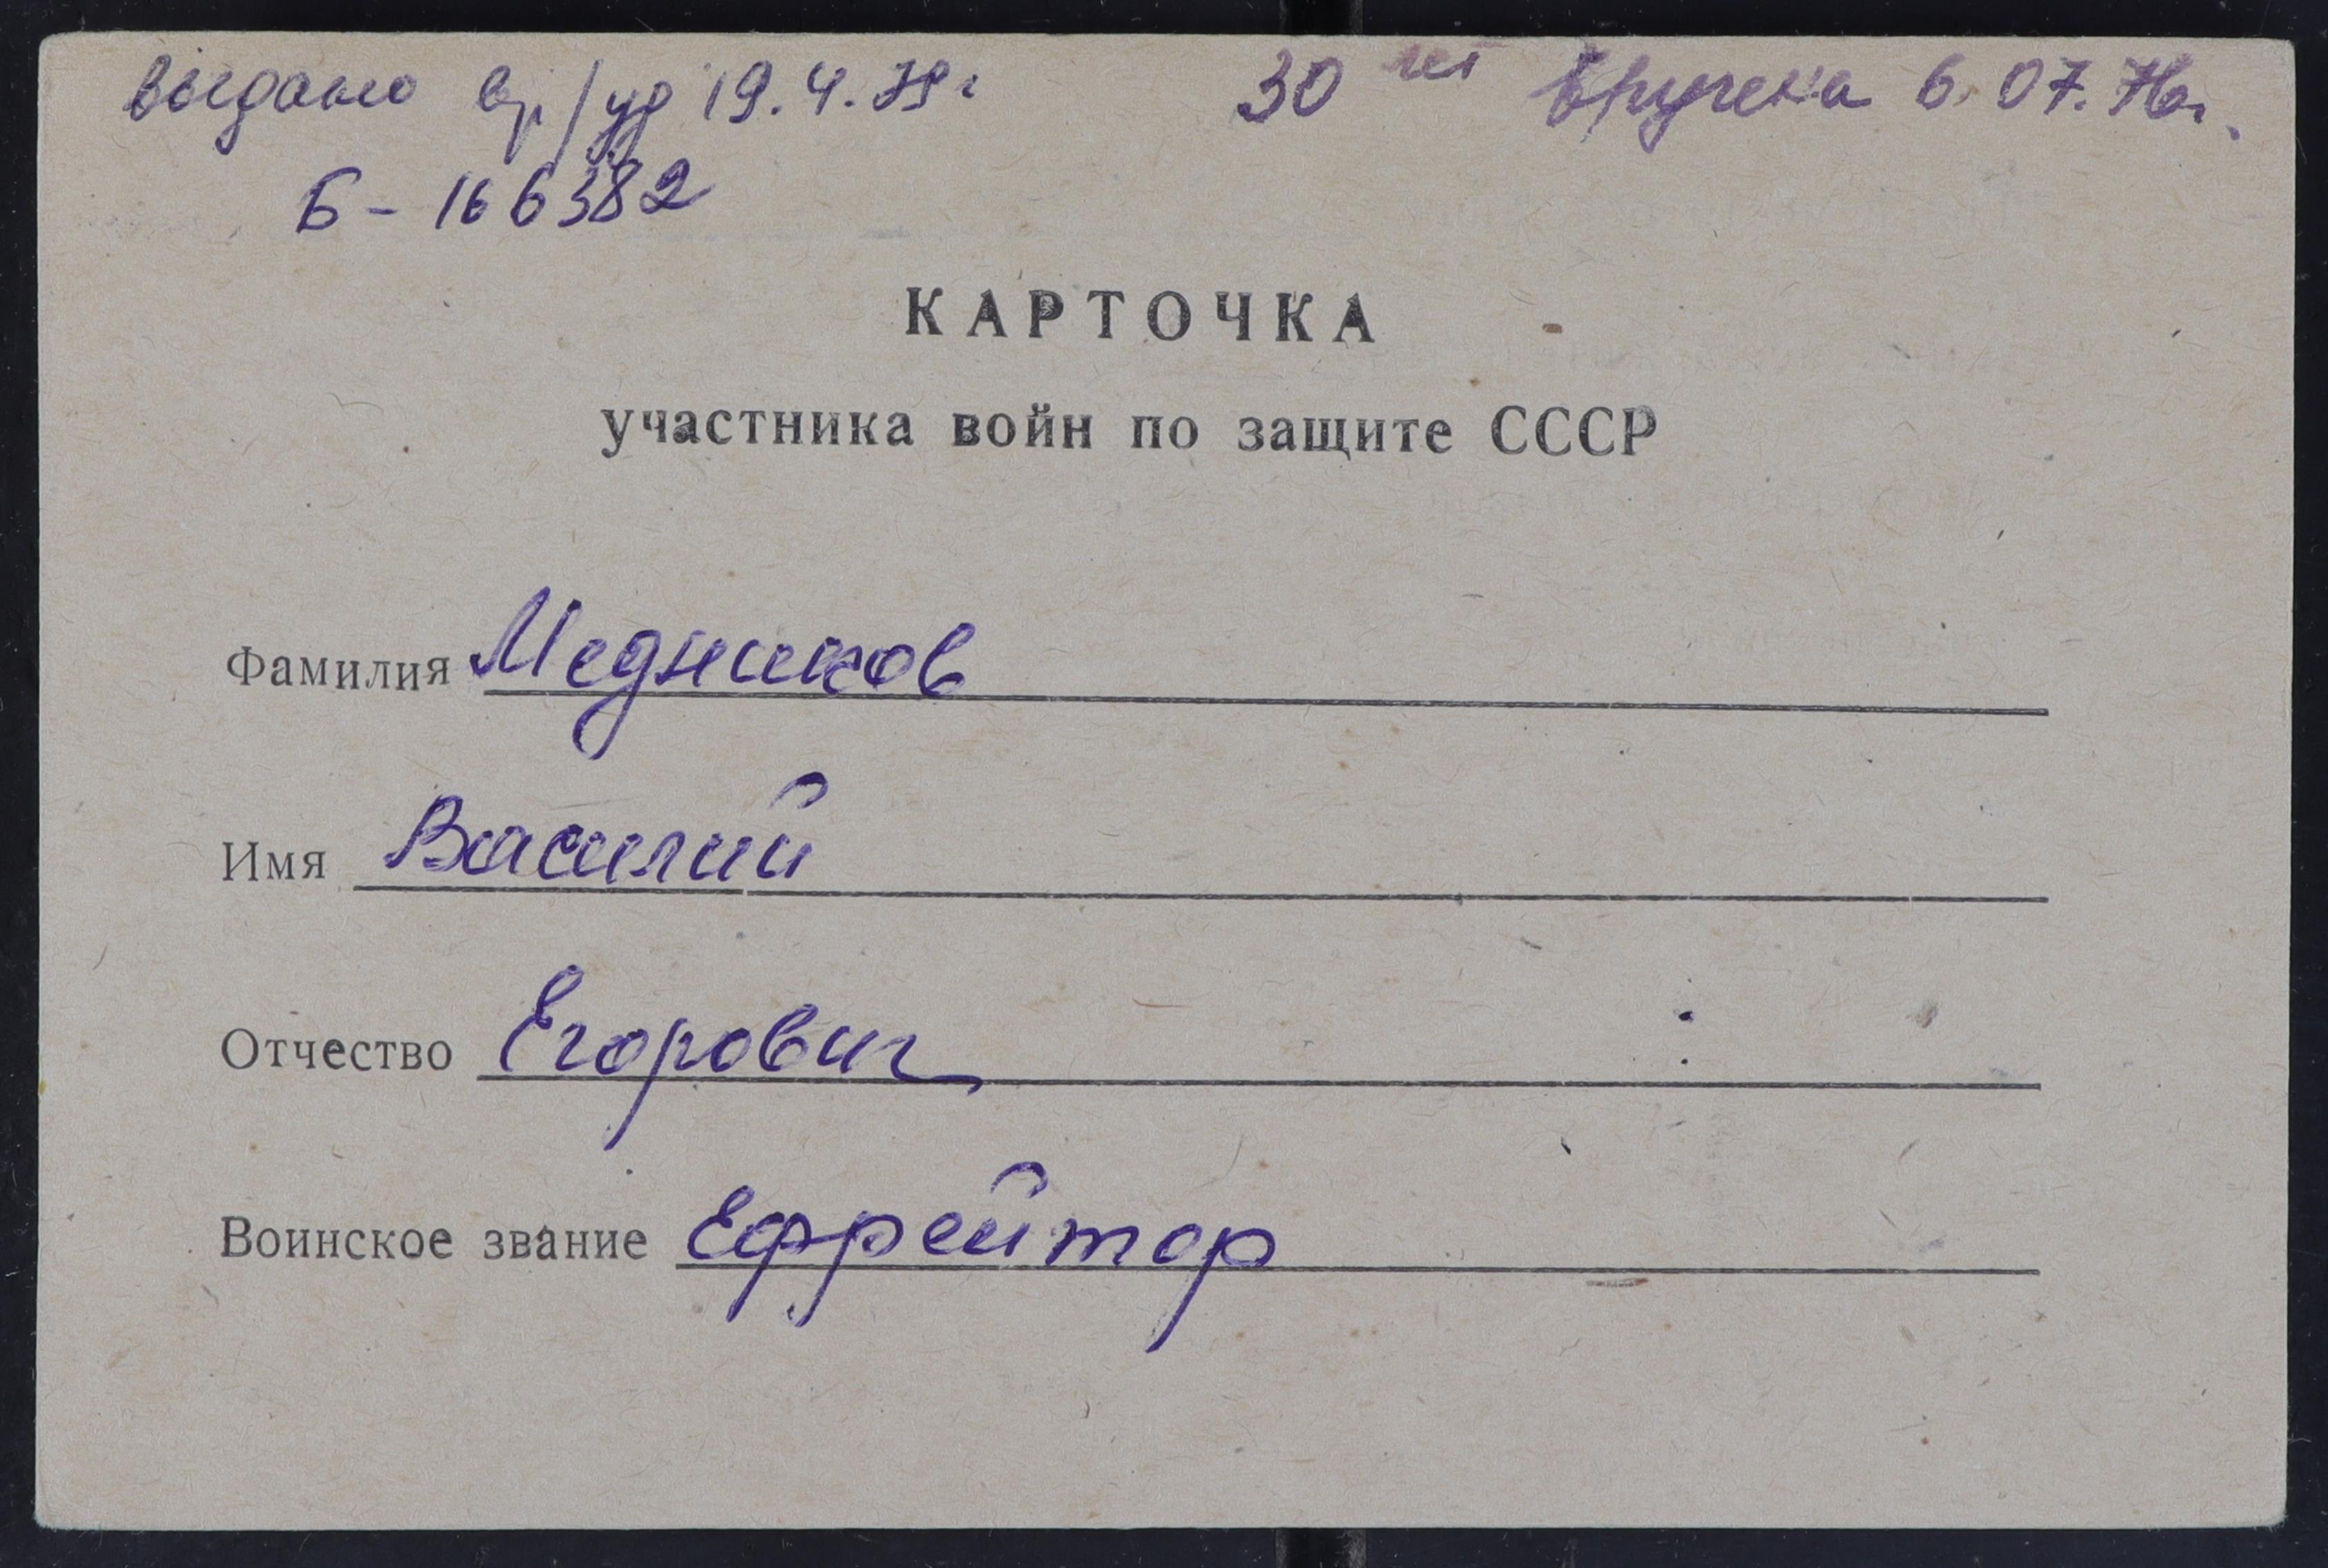 выдано вр/уд 19.4.79г
30 лет вручена 6.07.76г.
Б-166382
КАРТОЧКА
участника войн по защите СССР
Фамилия Медников
Имя Василий
Отчество Егорович
Воинское звание Ефрейтор